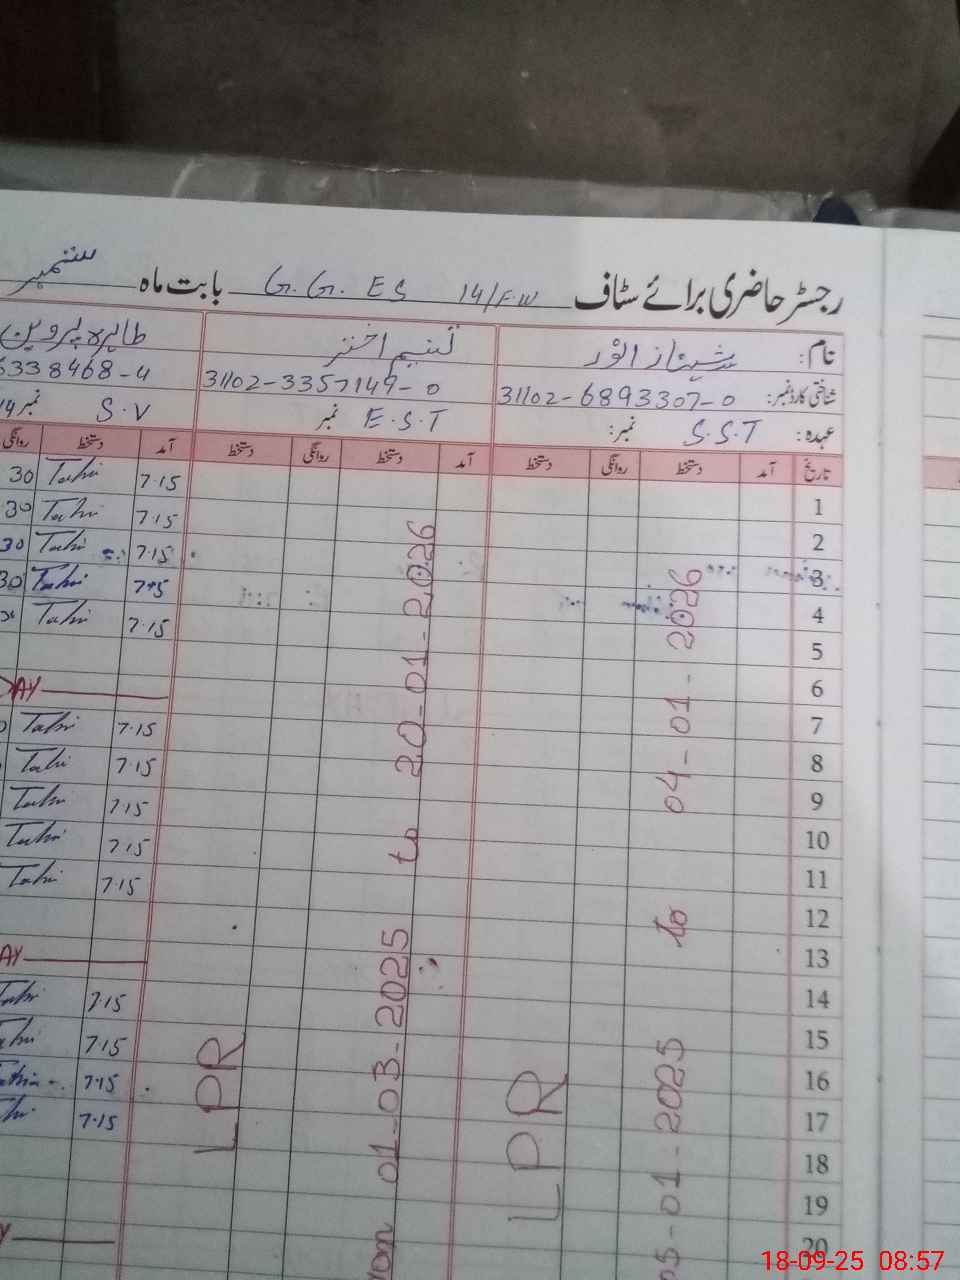 رجسٹر حاضری برائے سٹاف G.G. ES 14/F.W بابت ماہ ستمبر
نام: شہناز انور تسنیم اختر طاہرہ پروین
شناختی کارڈ نمبر: 31102-6893307-0 31102-3357149-0 6338468-4
عہدہ: S.S.T نمبر: E.S.T نمبر S.V نمبر
تاریخ آمد دستخط روانگی دستخط آمد دستخط روانگی دستخط آمد دستخط روانگی
1 7.15 Tahi 30
2 7.15 Tahi 30
3 7.15 Tahi 30
4 7.15 Tahi 30
5 7.15 Tahi
6
7 AY
8 7.15 Tahi
9 7.15 Tahi
10 7.15 Tahi
11 7.15 Tahi
12 7.15 Tahi
13
14 AY
15 7.15 Tahi
16 7.15 Tahi
17 7.15
18 7.15
19
20
LPR 05-01-2025 to 04-01-2026
LPR 01-03-2025 to 20-01-2026
18-09-25 08:57